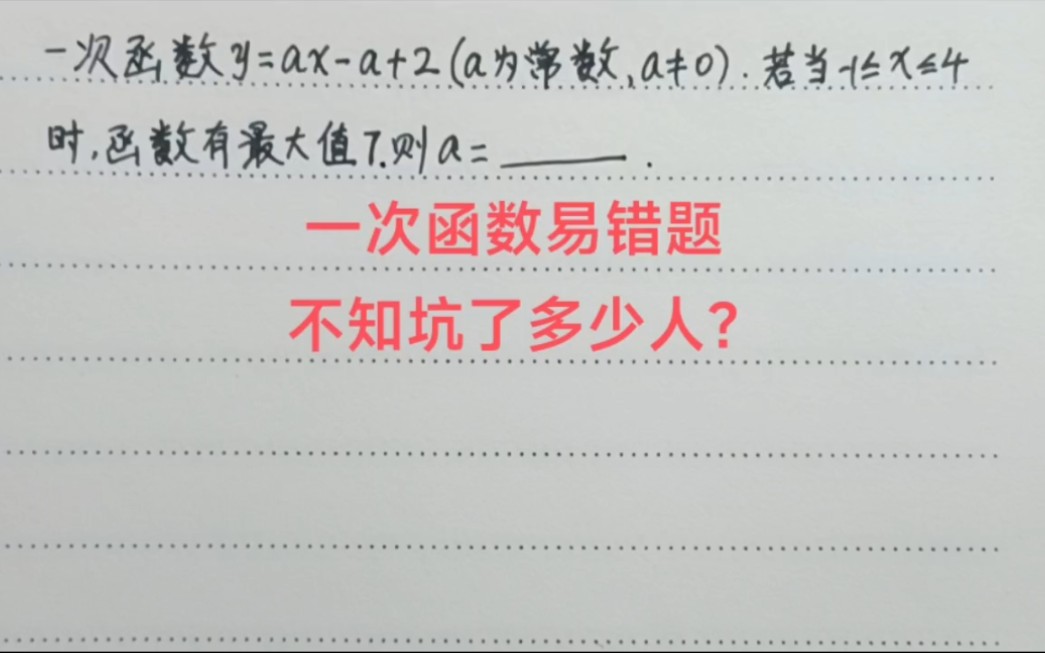 一次函数y=ax-a+2(a为常数,a≠0).若当-1≤x≤4
时,函数有最大值7.则a=______.
一次函数易错题
不知坑了多少人?